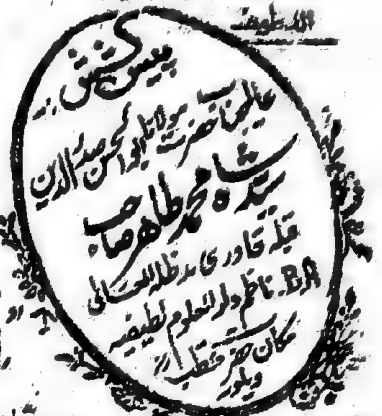 پیش کش
عالیجناب حضرت مولانا ابوالحسن صدرالدین
سید شاہ محمد طاہر صاحب
قبلہ قادری مدظلہ العالی
B.A. ناظم دارالعلوم لطیفیہ
مکان حضرت قطب
ویلور